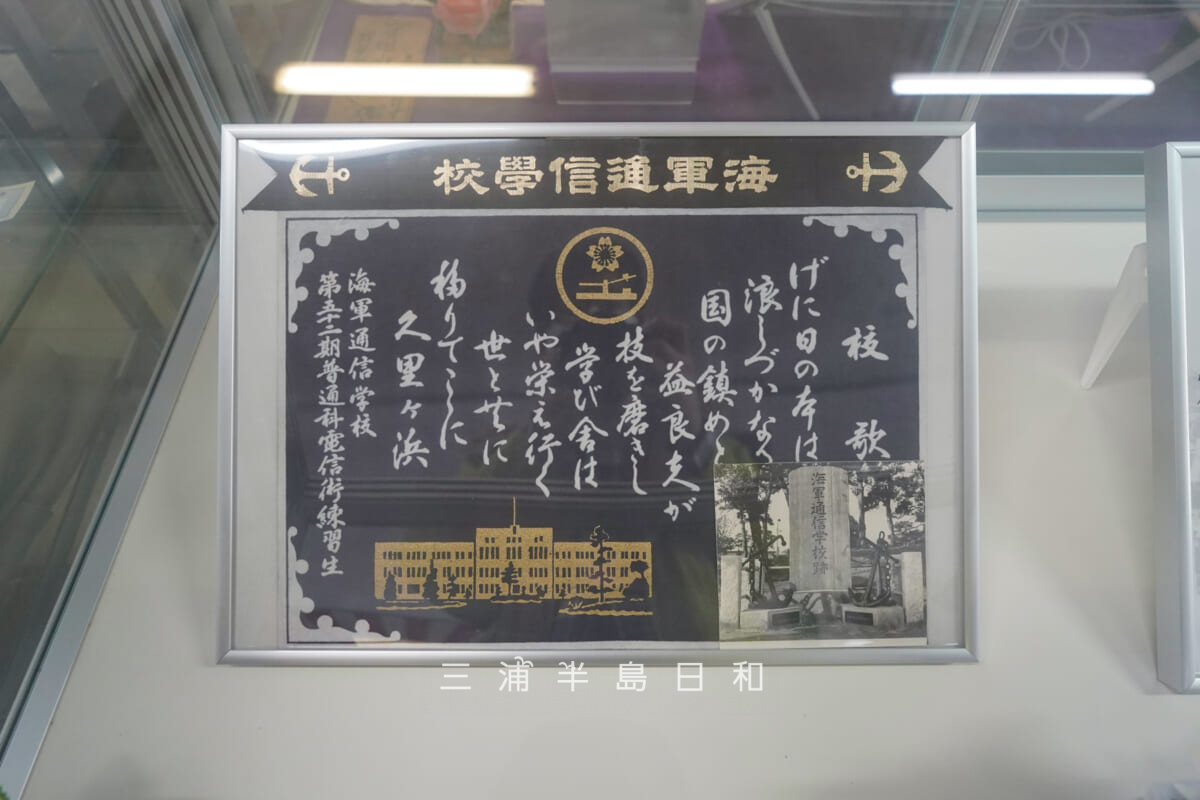 海軍通信學校
校歌
げに日の本は
浪しづかなる
国の鎮めと
益良夫が
技を磨きし
学び舎は
いや栄え行く
世とせに
移りてこゝに
久里ヶ浜
海軍通信学校
第五十二期普通科電信術練習生
海軍通信学校跡
三浦半島日和